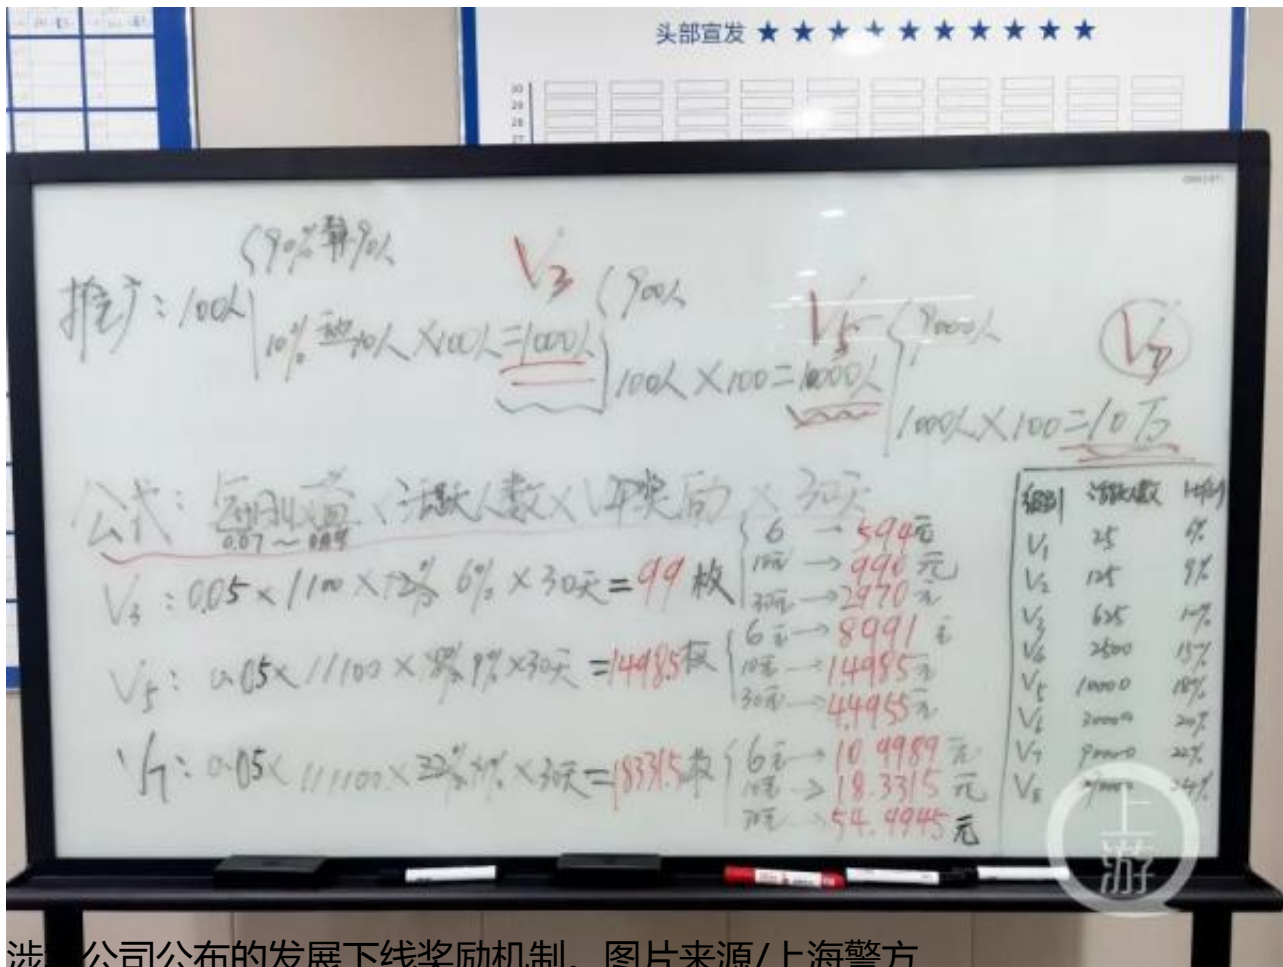 头部宣发 ★★★★★★★★★★
30
29
28
27
90% 90人
推广: 100人
10% 10人×100人=1000人
V3
900人
100人×100=10000人
V5
9000人
1000人×100=10万
V7
公式: 活跃人数× 奖励×30天
0.07~
V3: 0.05×1100× 6%×30天=99枚
6 → 594元
10元 → 990元
30元 → 2970元
V5: 0.05×11100× 9%×30天=1498.5枚
6元 → 8991元
10元 → 14985元
30元 → 44955元
V7: 0.05×111100× ×30天=18331.5枚
6元 → 10.9989元
10元 → 18.3315元
30元 → 54.9945元
级别 活跃人数
V1 25 6%
V2 125 9%
V3 625 12%
V4 2500 15%
V5 10000 18%
V6 30000 20%
V7 90000 22%
V8 24%
上游
公司公布的发展下线奖励机制。图片来源/上海警方